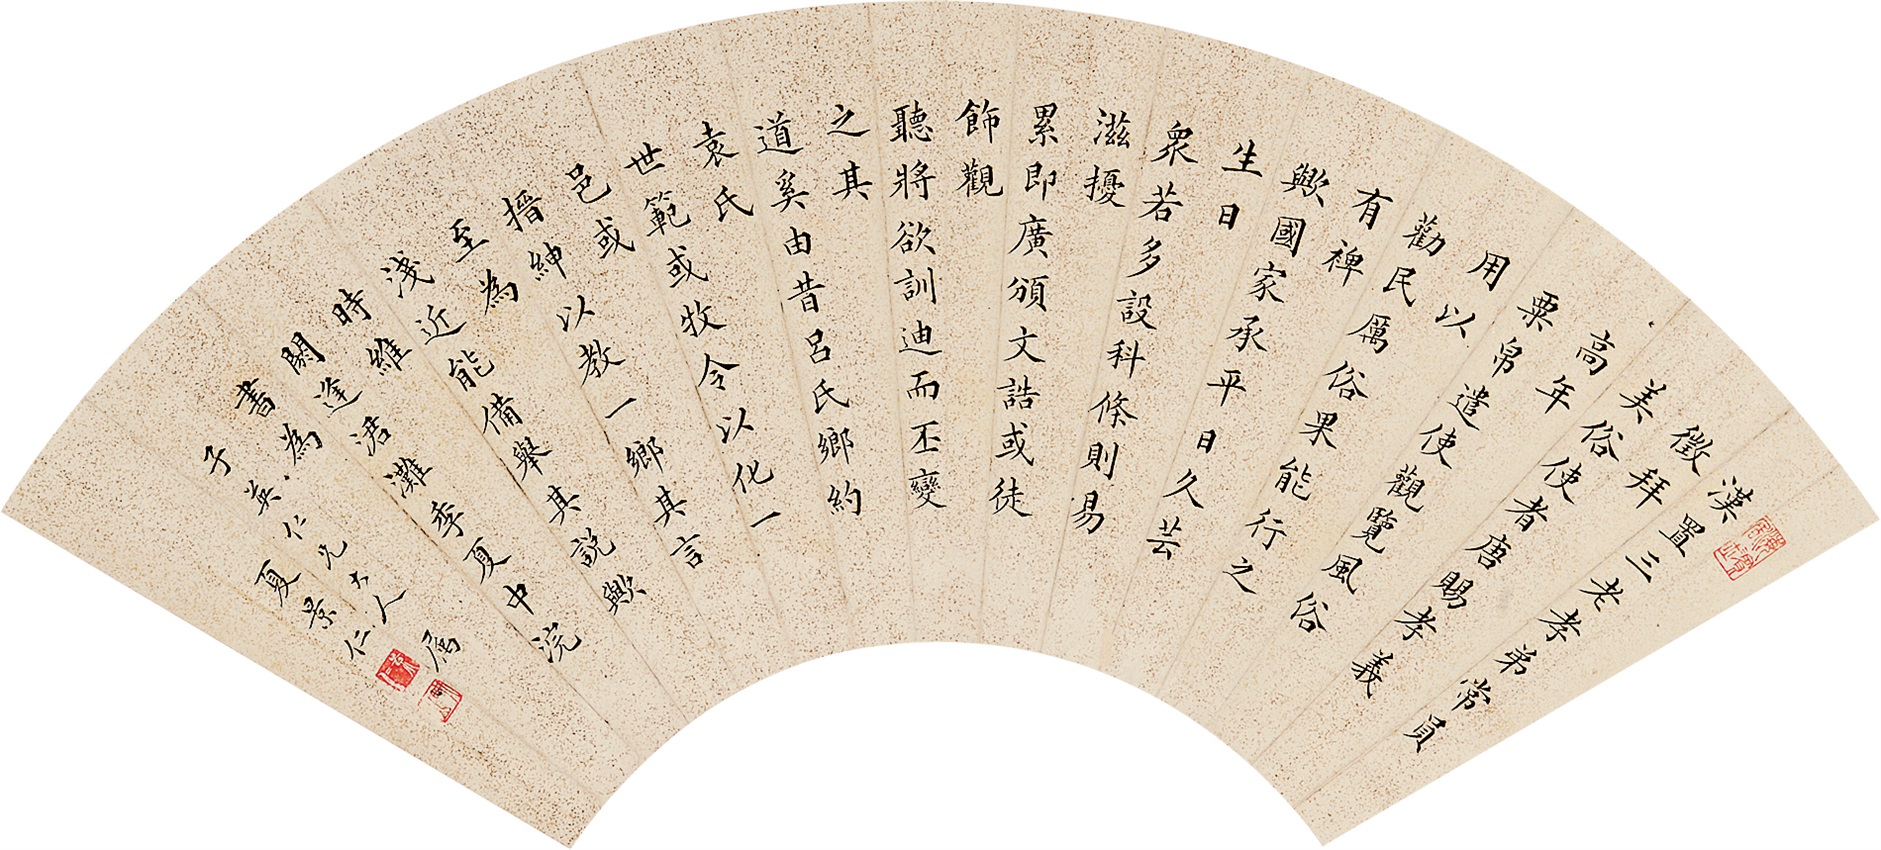 漢置三老孝弟常員
徵拜
美俗使者唐賜孝義
高年
粟帛遣使觀覽風俗
用以
勸民厲俗果能行之
有裨
歟國家承平日久芸
生日
眾若多設科條則易
滋擾
累即廣頒文誥或徒
飾觀
聽將欲訓迪而丕變
之其
道奚由昔呂氏鄉約
袁氏
世範或牧令以化一
邑或
搢紳以教一鄉其言
至為
淺近能備舉其說歟
時維
閼逢涒灘季夏中浣
書為
子英仁兄大人屬
夏景仁